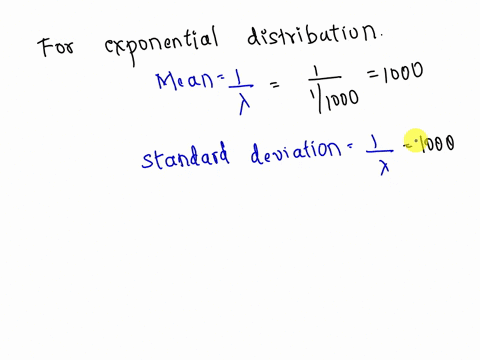 For exponential distribution.
Mean = 1/λ = 1/(1/1000) = 1000
standard deviation = 1/λ = 1000